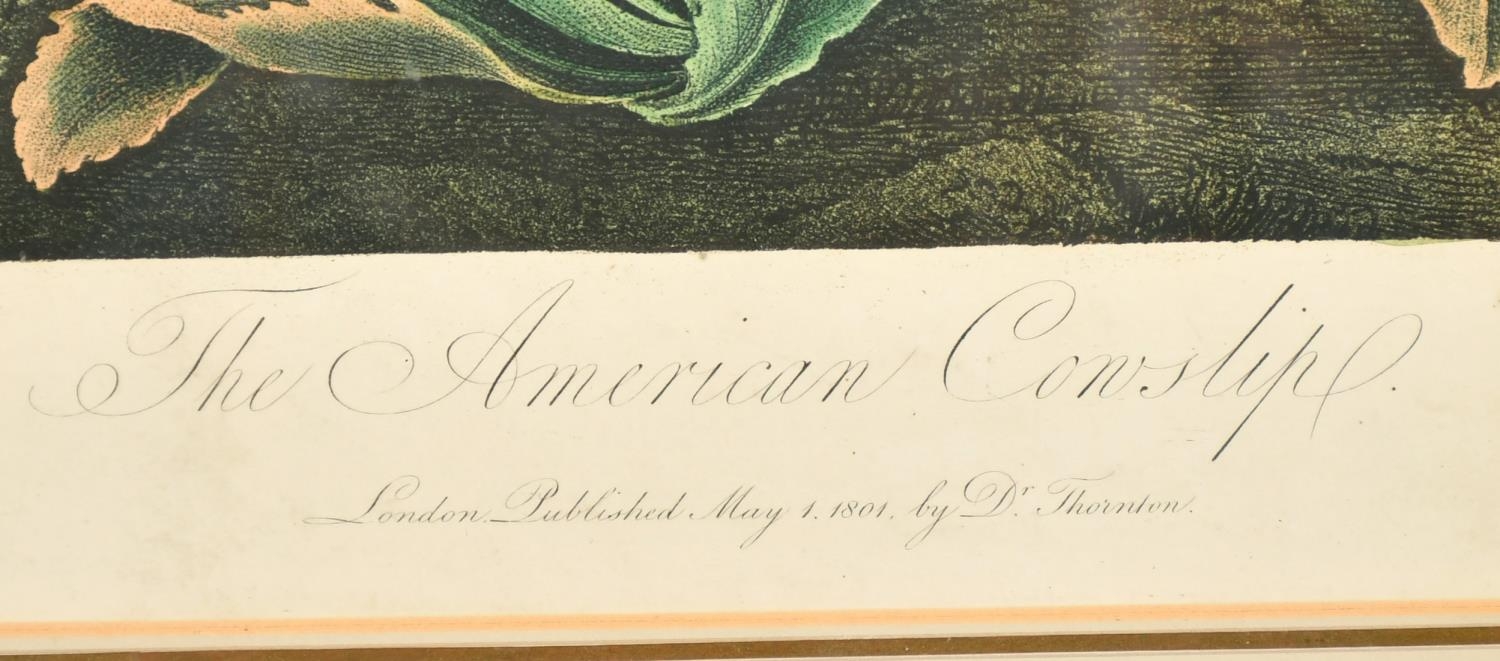 The American Cowslip.
London. Published May 1. 1801. by Dr. Thornton.